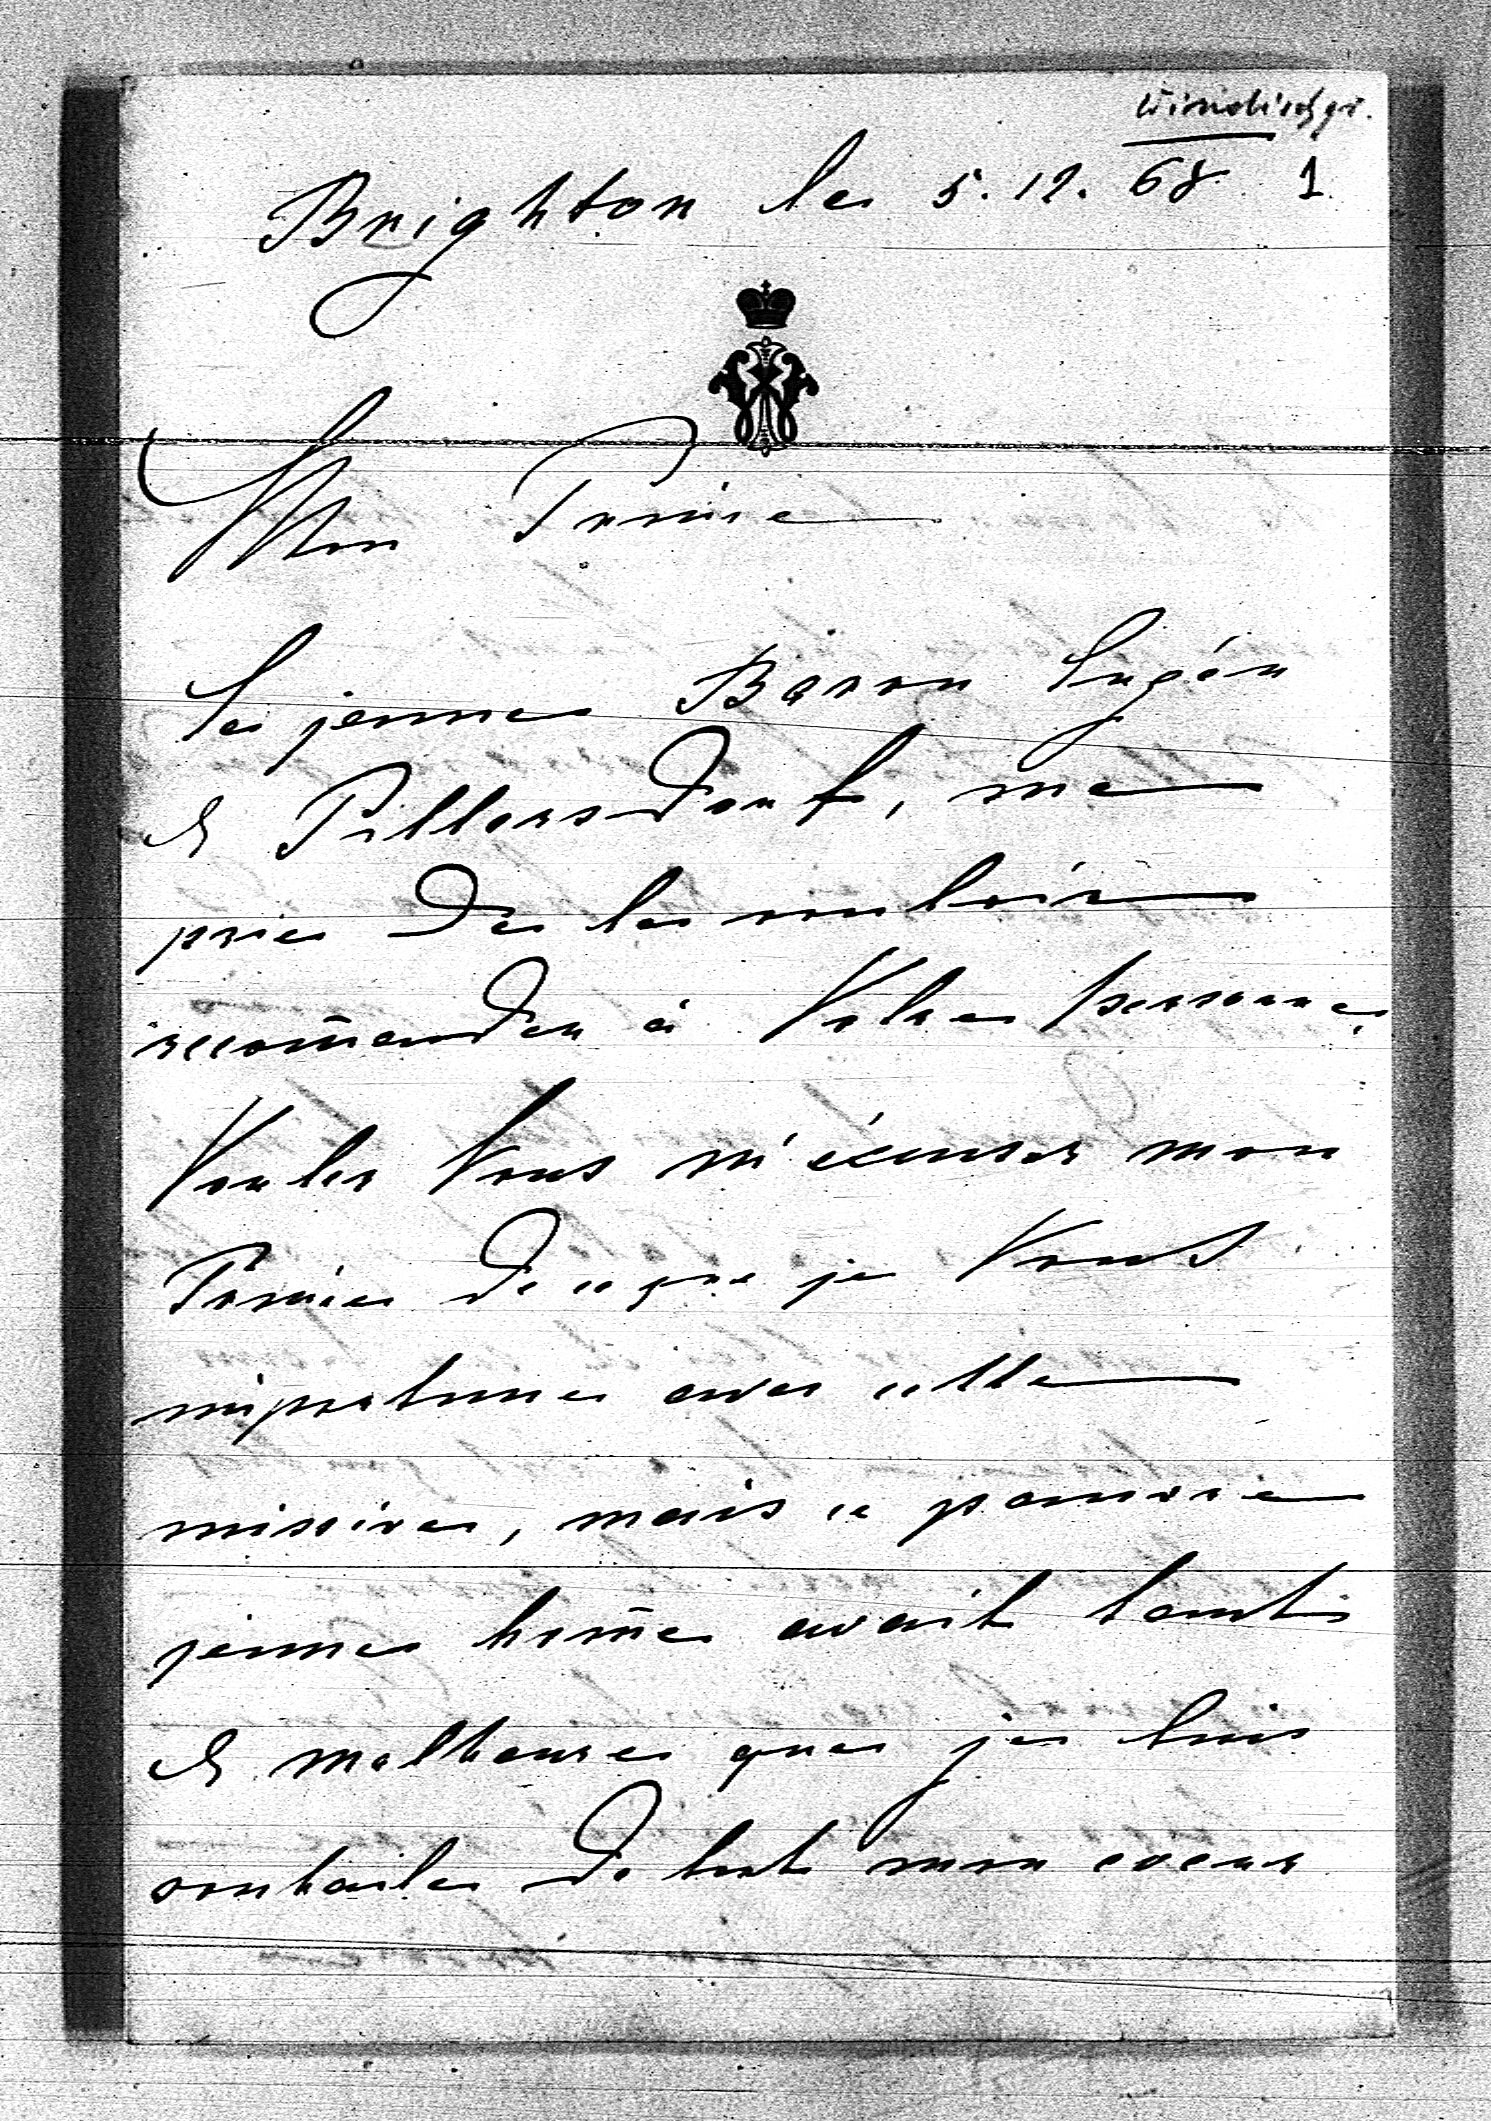 Windischgr.
Brighton le 5.12.68 1
Mon Prince
Le jeune Baron Eugén
de Pillersdorf, me
prie de le vouloir
recom̄ander à Votre personne,
Voulez Vous m'excuser mon
Prince de ce que je Vous
importune avec cette
missive, mais ce pauvre
jeune hom̄e avait tant
de malheures que je lui
souhaite de tout mon coeur